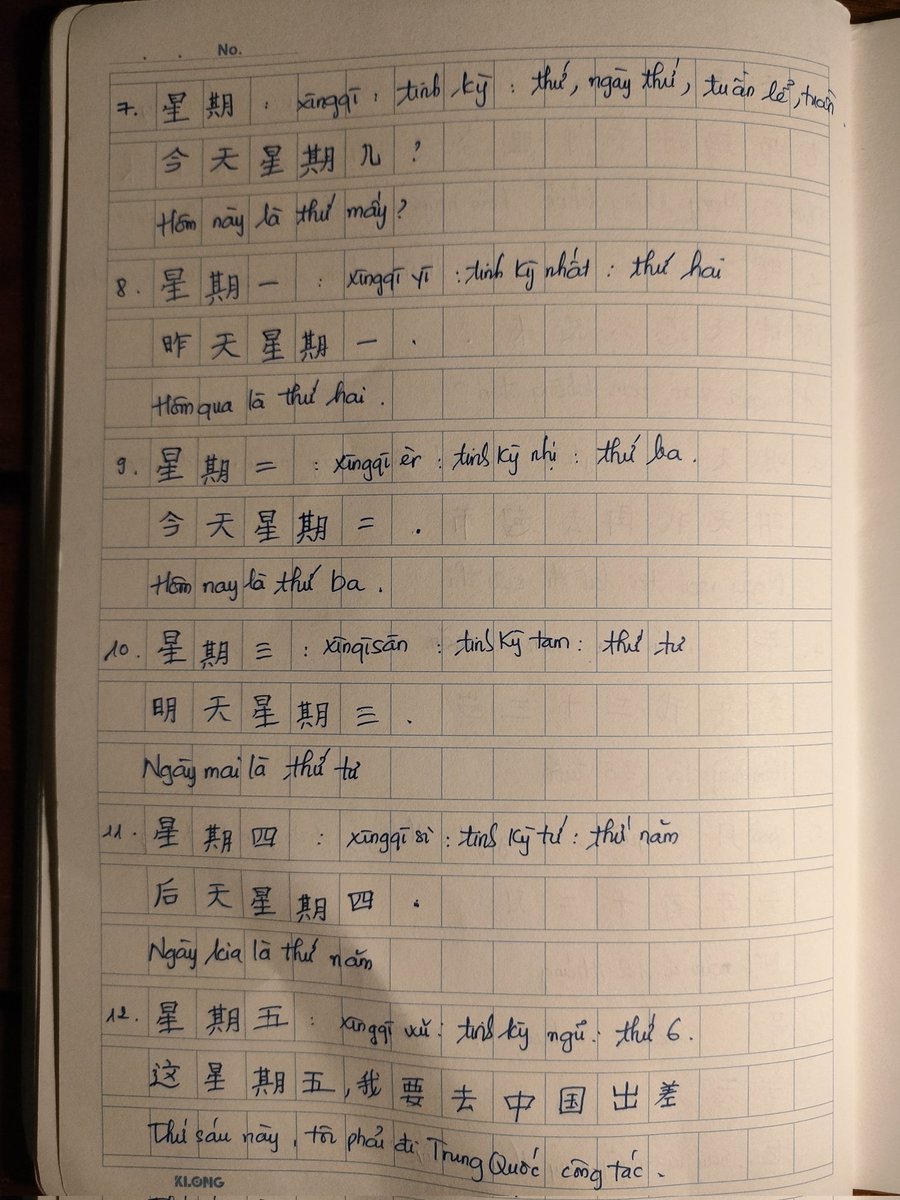 No.
7. 星期 : xīngqī : tinh kỳ : thứ, ngày thứ, tuần lể, tuần
今天星期几?
Hôm này là thứ mấy?
8. 星期一 : xīngqī yī : tinh kỳ nhất : thứ hai
昨天星期一.
Hôm qua là thứ hai.
9. 星期二 : xīngqī èr : tinh kỳ nhị : thứ ba.
今天星期二.
Hôm nay là thứ ba.
10. 星期三 : xīnqīsān : tinh kỳ tam : thứ tư
明天星期三.
Ngày mai là thứ tư
11. 星期四 : xīngqī sì : tinh kỳ tứ : thứ năm
后天星期四.
Ngày kia là thứ năm
12. 星期五 : xīngqī wǔ : tinh kỳ ngũ : thứ 6.
这星期五,我要去中国出差
Thứ sáu này, tôi phải đi Trung Quốc công tác.
KLONG